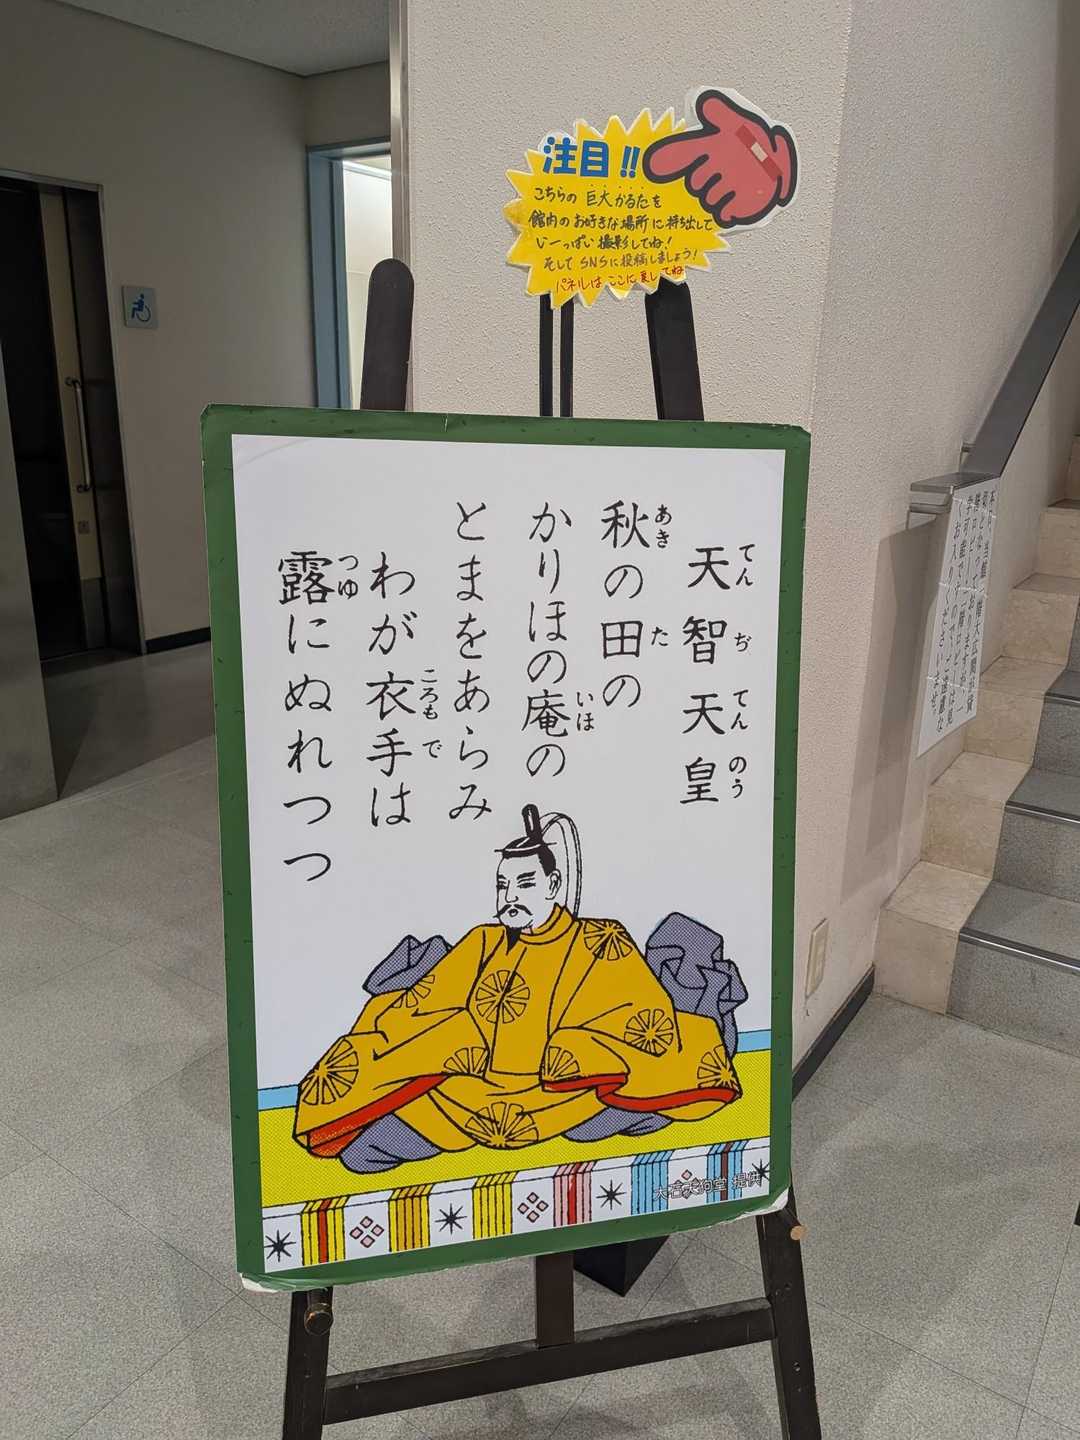 注目!!
こちらの巨大かるたを
館内のお好きな場所に持ち出して
いーっぱい撮影してね!
そしてSNSに投稿しましょう!
パネルはここに戻してね
天智天皇
てんぢてんのう
秋の田の
あきた
かりほの庵の
いほ
とまをあらみ
わが衣手は
ころもで
露にぬれつつ
つゆ
大石天狗堂 提供